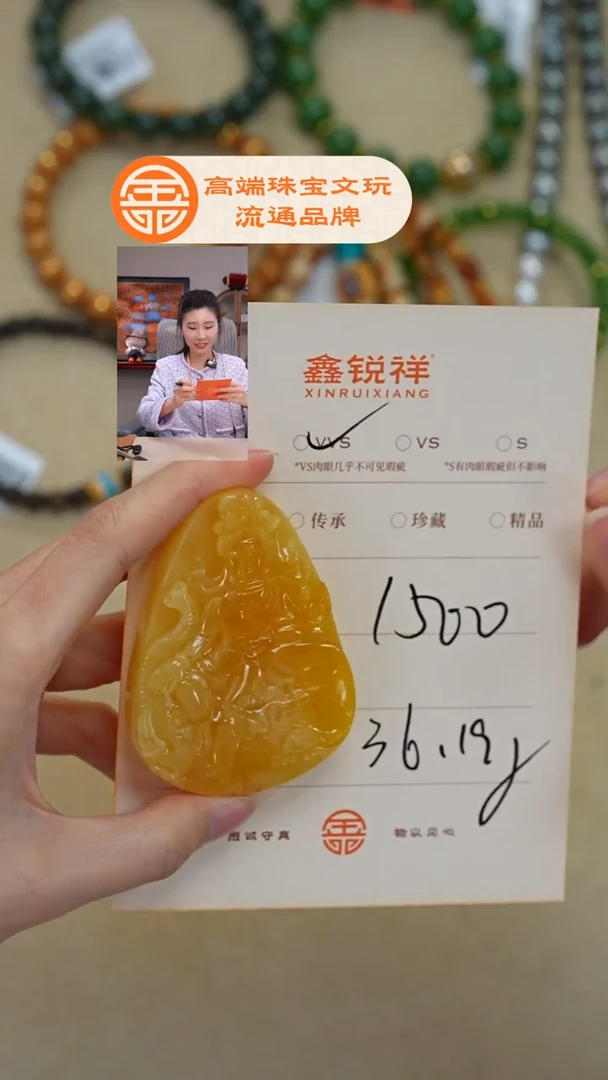 高端珠宝文玩
流通品牌
鑫锐祥
XINRUIXIANG
VVS VS S
*VS肉眼几乎不可见瑕疵 *S有肉眼瑕疵但不影响
传承 珍藏 精品
1500
36.19g
诚守真 物以见心